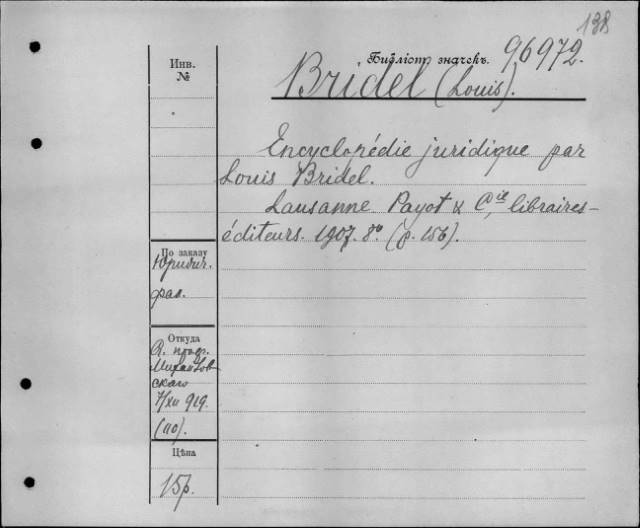 138
Библіот. значекъ. 96972.
Инв.
№
Bridel (Louis).
Encyclopédie juridique par
Louis Bridel.
Lausanne Payot & Cie, libraires-
éditeurs. 1907. 8º (p. 156).
По заказу
Юридич.
фак.
Откуда
Михайлов-
скаго
7/XII 919.
(110).
Цѣна
15р.